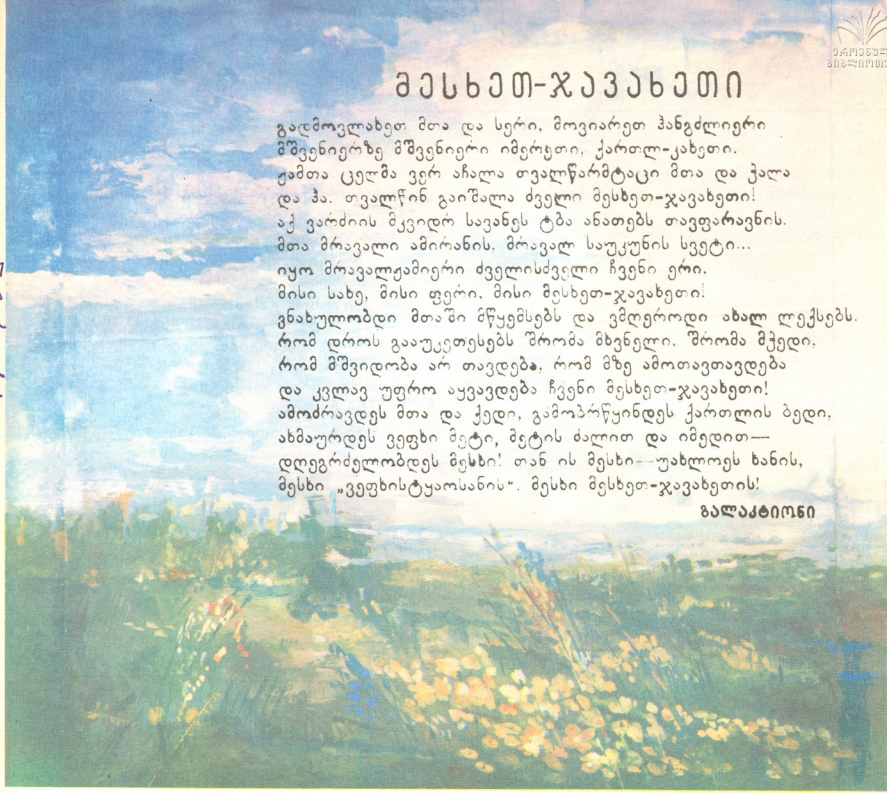 ეროვნული
ბიბლიოთეკა
მესხეთ-ჯავახეთი
გადმოვლახეთ მთა და სერი, მოვიარეთ ჰანგძლიერი
მშვენიერზე მშვენიერი იმერეთი, ქართლ-კახეთი.
ჟამთა ცელმა ვერ აჩალა თვალწარმტაცი მთა და ჭალა
და ჰა. თვალწინ გაიშალა ძველი მესხეთ-ჯავახეთი!
აქ ვარძიის მკვიდრ სავანეს ტბა ანათებს თავფარავნის.
მთა მრავალი ამირანის. მრავალ საუკუნის სვეტი...
იყო მრავალჟამიერი ძველისძველი ჩვენი ერი.
მისი სახე, მისი ფერი, მისი მესხეთ-ჯავახეთი!
ვნახულობდი მთაში მწყემსებს და ვმღეროდი ახალ ლექსებს.
რომ დროს გააუკეთესებს შრომა მხვნელი. შრომა მჭედი,
რომ მშვიდობა არ თავდება, რომ მზე ამოთავთავდება
და კვლავ უფრო აყვავდება ჩვენი მესხეთ-ჯავახეთი!
ამოძრავდეს მთა და ქედი, გამობრწყინდეს ქართლის ბედი,
ახმაურდეს ვეფხი მეტი, მეტის ძალით და იმედით—
დღეგრძელობდეს მესხი! თან ის მესხი—უახლოეს ხანის,
მესხი „ვეფხისტყაოსანის“. მესხი მესხეთ-ჯავახეთის!
გალაკტიონი